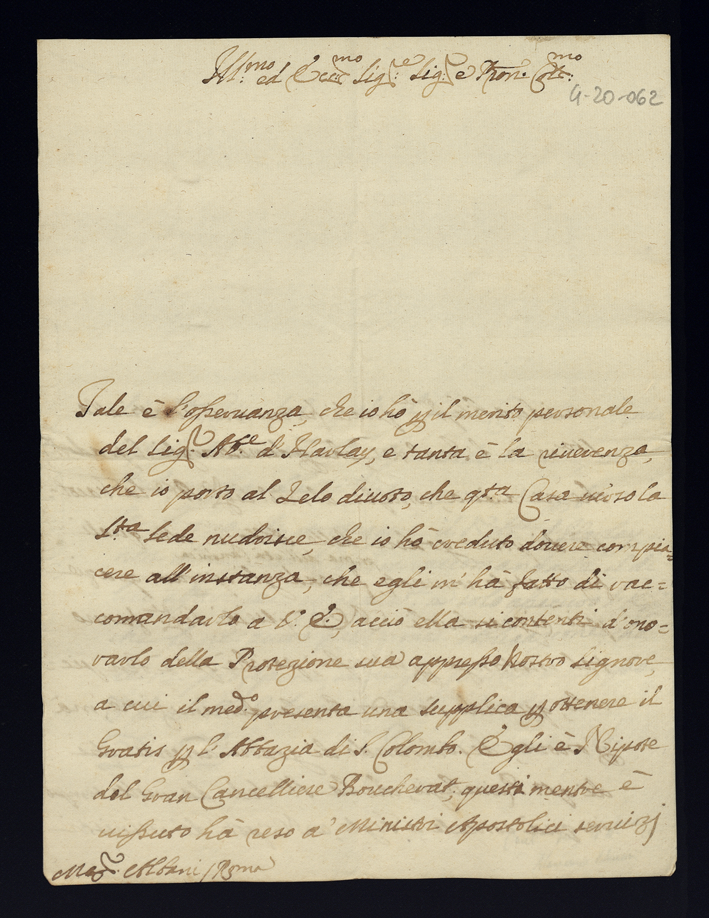 Ill.mo ed Ecc.mo Sig.re Sig.re e Pron. Col.mo
4-20-062
Tale è l'osservanza, che io hò p il merito personale
del Sig.r Ab.e d'Harlay, e tanta è la riverenza,
che io porto al Zelo divoto, che q.sta Casa verso la
S.ta Sede nudrisce, che io hò creduto dover compia=
cere all'instanza, che egli m'hà fatto di rac=
comandarlo a V. E., acciò ella si contenti d'ono=
rarlo della Protezione sua appresso Nostro Signore,
a cui il med.o presenta una supplica p ottenere il
Gratis p l'Abbazia di S. Colombo. Egli è Nipote
del Gran Cancelliere Boucherat; questi mentre è
vissuto hà reso a' Ministri Apostolici servizj
Mo.r Albani / Roma